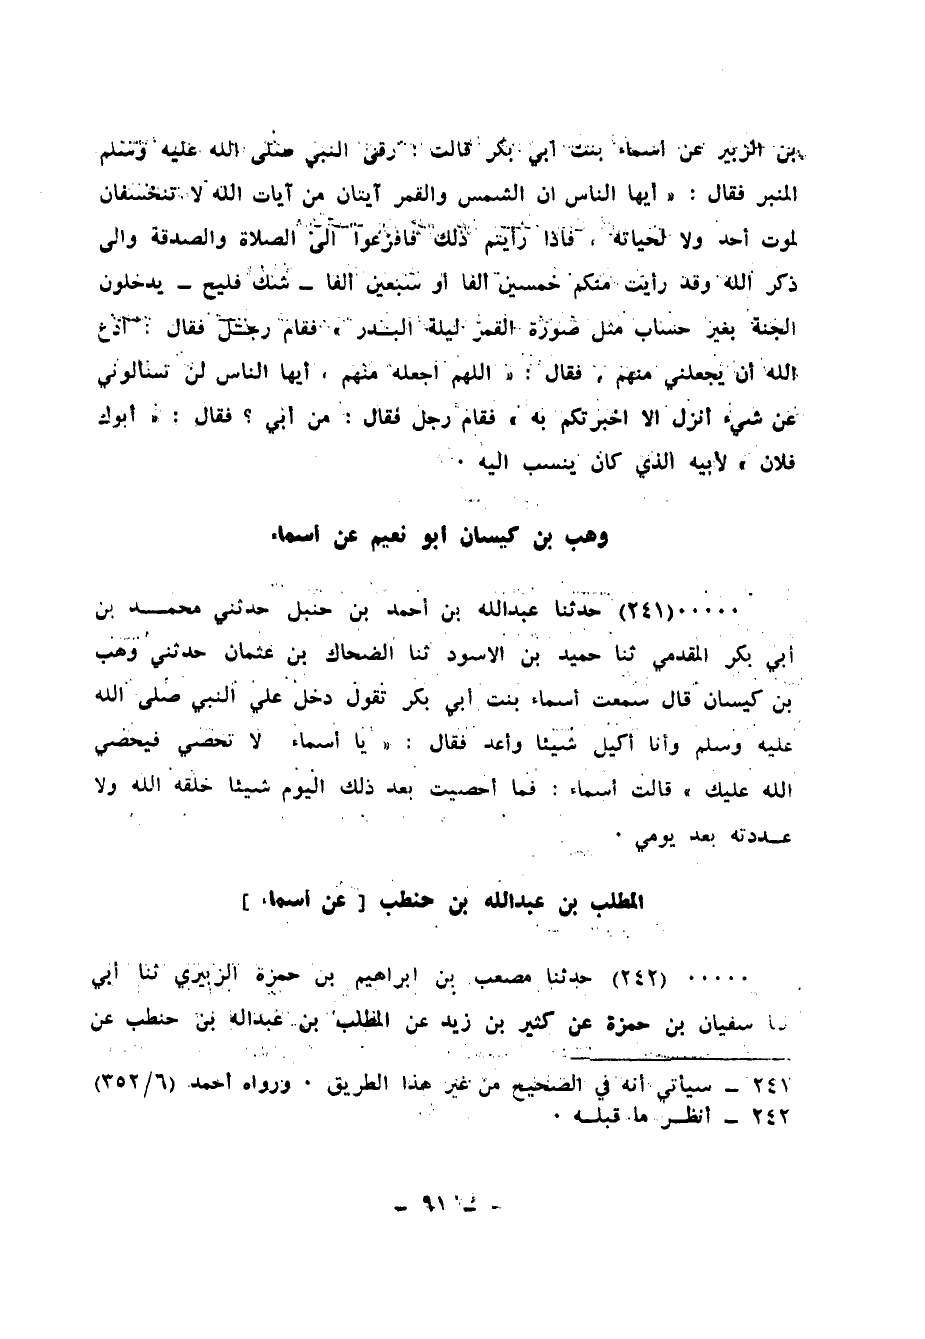 بن الزبير عن أسماء بنت أبي بكر قالت : رقى النبي صلى الله عليه وسلم
المنبر فقال : « أيها الناس ان الشمس والقمر آيتان من آيات الله لا تنخسفان
لموت أحد ولا لحياته ، فاذا رأيتم ذلك فافزعوا الى الصلاة والصدقة والى
ذكر الله وقد رأيت منكم خمسين ألفا أو سبعين ألفا ــ شك فليح ــ يدخلون
الجنة بغير حساب مثل صورة القمر ليلة البدر » فقام رجل فقال : ادع
الله أن يجعلني منهم ، فقال : « اللهم اجعله منهم ، أيها الناس لن تسألوني
عن شيء أنزل الا اخبرتكم به » فقام رجل فقال : من أبي ؟ فقال : « أبوك
فلان » لأبيه الذي كان ينسب اليه ٠
وهب بن كيسان أبو نعيم عن أسماء
٠٠٠٠٠(٢٤١) حدثنا عبدالله بن أحمد بن حنبل حدثني محمد بن
أبي بكر المقدمي ثنا حميد بن الاسود ثنا الضحاك بن عثمان حدثني وهب
بن كيسان قال سمعت أسماء بنت أبي بكر تقول دخل علي النبي صلى الله
عليه وسلم وأنا أكيل شيئا وأعد فقال : « يا أسماء لا تحصي فيحصي
الله عليك » قالت أسماء : فما أحصيت بعد ذلك اليوم شيئا خلقه الله ولا
عددته بعد يومي ٠
المطلب بن عبدالله بن حنطب [ عن أسماء ]
٠٠٠٠٠ (٢٤٢) حدثنا مصعب بن ابراهيم بن حمزة الزبيري ثنا أبي
سفيان بن حمزة عن كثير بن زيد عن المطلب بن عبدالله بن حنطب عن
٢٤١ ــ سيأتي أنه في الصحيح من غير هذا الطريق ٠ ورواه أحمد (٣٥٢/٦)
٢٤٢ ــ أنظر ما قبله ٠